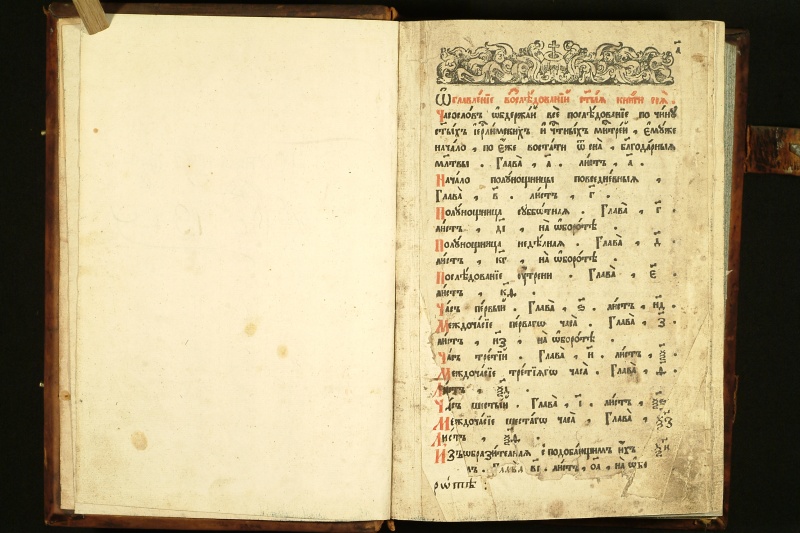 а҃
Ѡглавле́нїе въ послѣ́дованїи ст҃ы́ѧ кни́ги сеѧ̀ .
Часосло́въ ѡ҆бдержа́й всѐ послѣ́дованїе по чи́нꙋ
ст҃ы́хъ і҆ерл҇и́мскихъ и҆ чтⷭ҇ны́хъ мн҃тре́й , є҆мꙋ́же
нача́ло , по є҆́же воста́ти ѿ сна̀ , бл҃года́рныѧ
мл҃твы . Глава̀ , а҃ . ли́стъ , а҃ .
Нача́ло полꙋ́нощницы повседне́вныѧ ,
Глава̀ , в҃ . ли́стъ , г҃ .
Полꙋ́нощница сꙋббѡ́тнаѧ . Глава̀ , г҃ .
ли́стъ , д҃і , на ѡ҆боро́тѣ .
Полꙋ́нощница недѣ́лнаѧ . Глава̀ , д҃ .
ли́стъ , к҃г , на ѡ҆боро́тѣ .
Послѣ́дованїе ᲂу҆́трени . Глава̀ , є҃ .
ли́стъ , к҃ѳ .
Ча́съ пе́рвый . Глава̀ , ѕ҃ . ли́стъ , н҃д .
Междоча́сїе пе́рвагѡ часа̀ . Глава̀ , з҃ .
ли́стъ , н҃з , на ѡ҆боро́тѣ .
Ча́съ тре́тїй . Глава̀ , и҃ . ли́стъ ,
Междоча́сїе тре́тїѧгѡ часа̀ . Глава̀ , ѳ҃ .
Ли́стъ , ѯ҃д .
Ча́съ шесты́й . Глава̀ , і҃ . ли́стъ , ѯ҃ѕ
Междоча́сїе шеста́гѡ часа̀ , Глава̀ ,
Ли́стъ , ѯ҃ѳ .
И҆зѡбрази́телнаѧ с подоба́ющимъ и҆́хъ
Глава̀ в҃і . ли́стъ , о҃а , на ѡ҆бо
ро́тѣ :